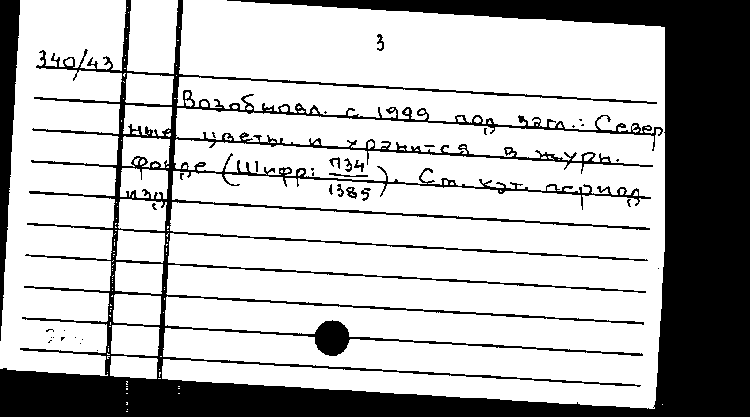 3
340/43
Возобновл. с 1999 под загл.: Север
ные цветы и хранится в журн.
фонде (Шифр: П34/1385). См. кат. период
изд